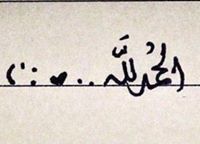 الحمدُ للّه .. ♥ : ")